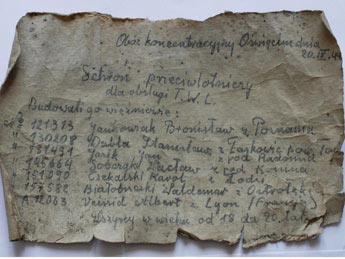 Obóz koncentracyjny Oświęcim dnia
20.IX.44
Schron przeciwlotniczy
dla obsługi T.W.L.
Budowali go więźniowie:
Nr 121313 Jankowiak Bronisław z Poznania
" 130208 Dubla Stanisław z Laskowic pow.
" 131491 Jasik Jan z pod Radomia
" 145664 Sobczak Wacław z pod Konina
" 151090 Czekalski Karol z Łodzi
" 157582 Białobrzski Waldemar z Ostrołęki
A 12063 Veissid Albert z Lyon (Francja)
Wszyscy w wieku od 18 do 20 lat